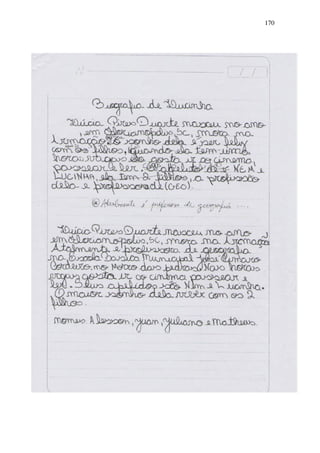 170
Biografia de Lucinha
Lúcia Pires Duarte nasceu no ano
, em Florianópolis, SC, mora na
Armação. O sonho dela é ser feliz
com os filhos, quando ela tem uma
horas vagas ela gosta ir po cinema,
passear e ler. Os apelidos dela NEM e
LUCINHA, ela tem 2 filhos, a profissão
dela e professora de (GEO).
Atualmente é professora de geografia ....
Lúcia Pires Duarte nasceu no ano
em Florianopolis, SC, mora na Armação
Atalmenti e professora de geografia
na Escola Basica Municipal José Amaro
Cordeiro, no Morro das pedras. Nas horas
vagas gosta ir ao cinema passear e
ler. Seus apelidos são Nem e Lucinha.
O maior sonho dela viver com os 2
filhos.
nomes Alesson, Juan, Juliano e Matheus.